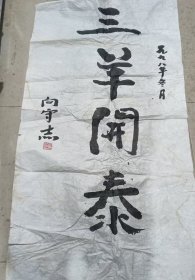 三羊開泰
一九九八年六月
向守志